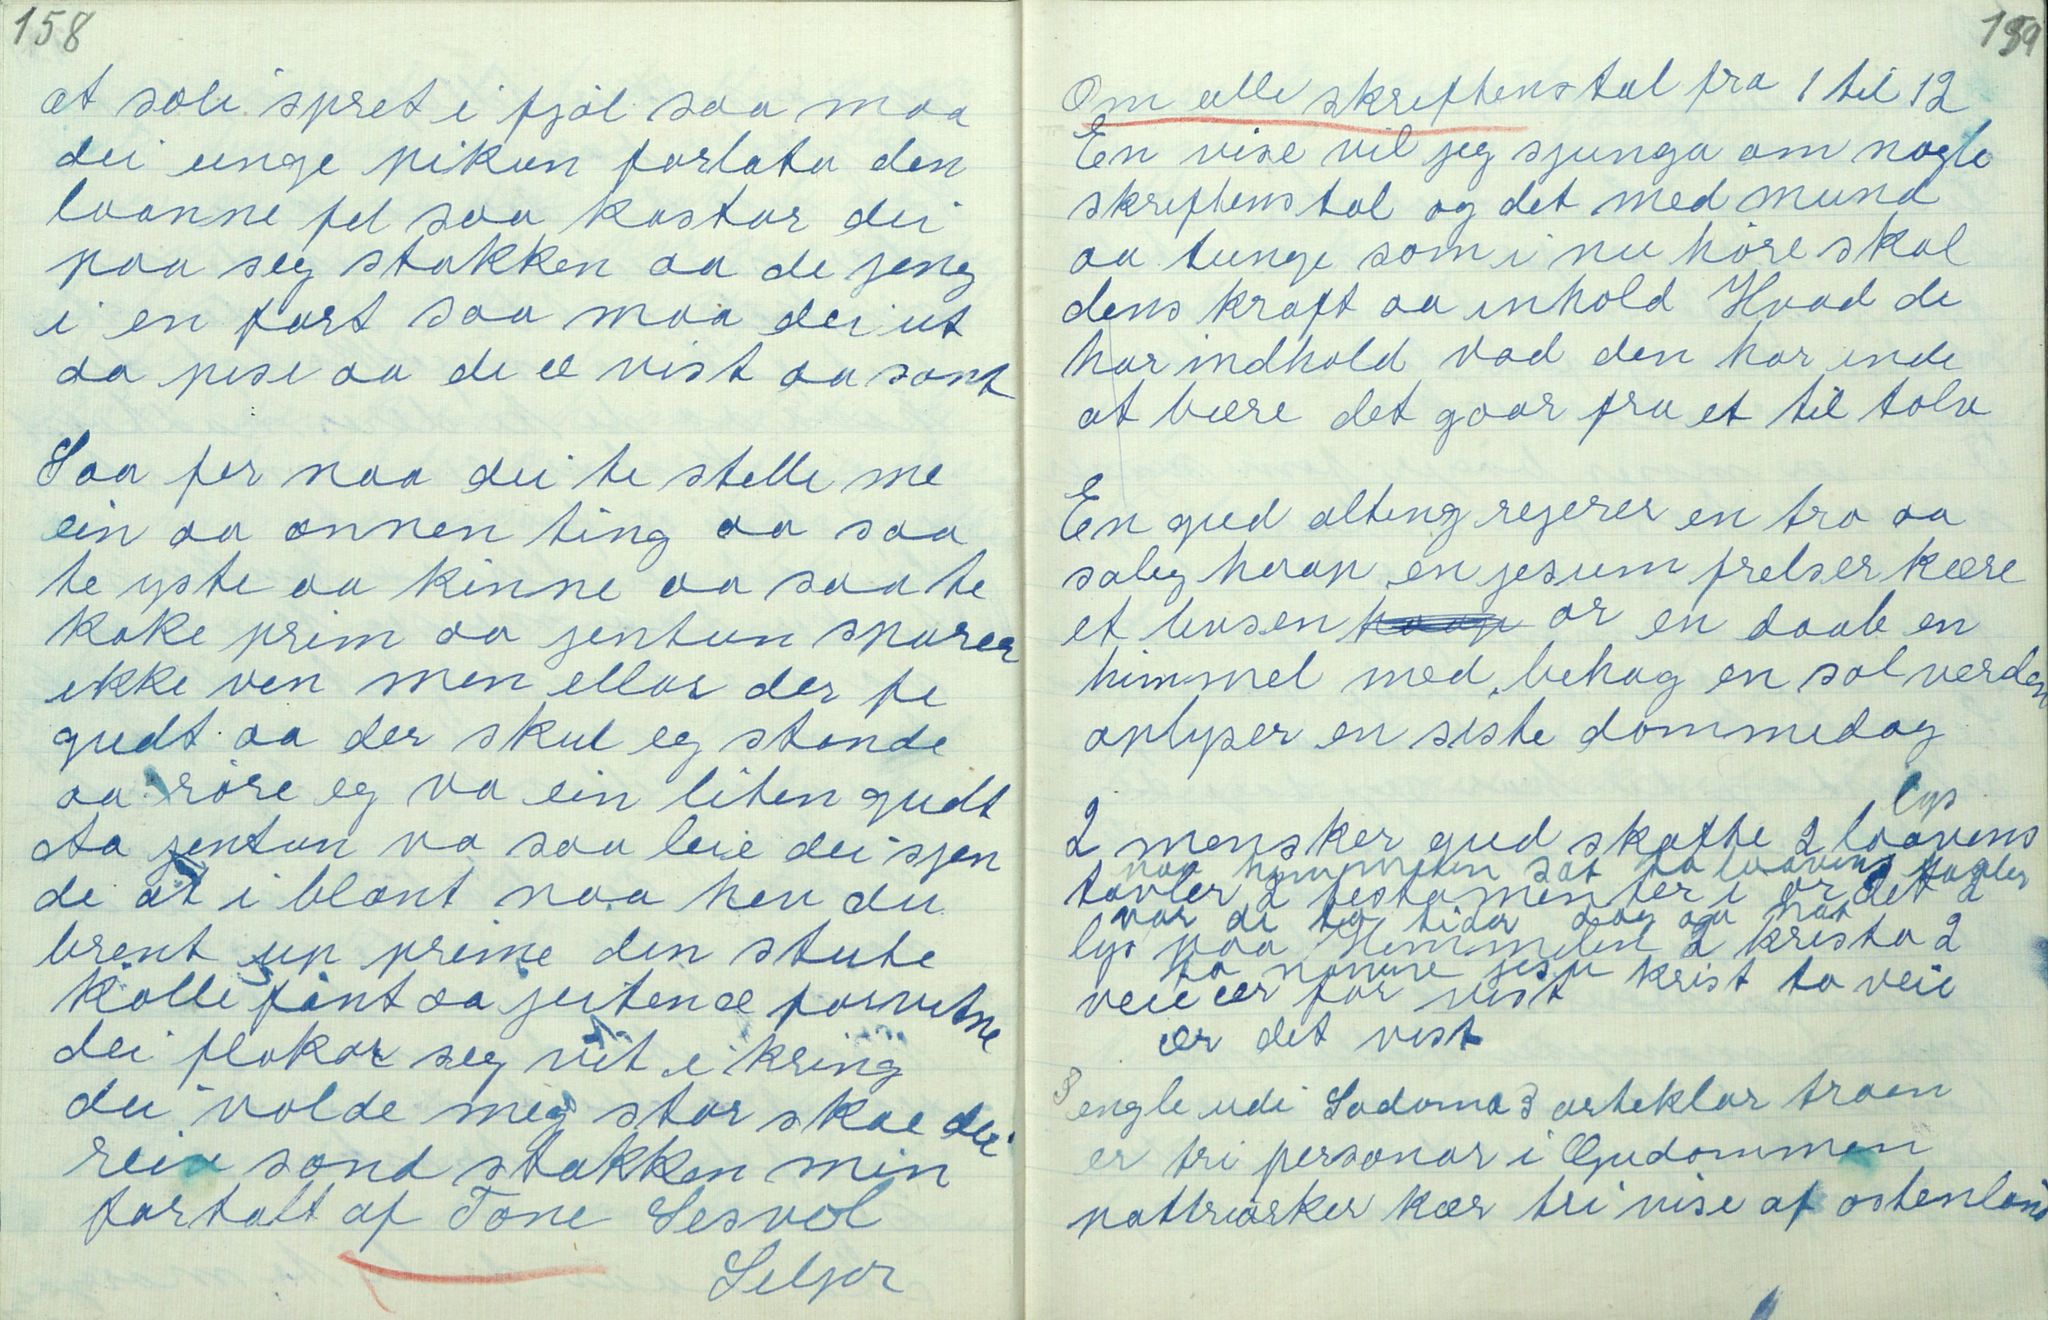 158
at soli spret i fjøl saa maa
dei unge pikun forlata den
loanne fel saa kastar dei
paa seg stakken aa de jeng
i en fart saa maa dei ut
aa pese aa de æ vist aa sant
Saa fer naa dei te stelle me
ein aa annen ting aa saa
te yste aa kinne aa saa te
koke prim aa jentun sparer
ikke ven men ellar der fe
gudt aa der skul eg stande
aa röre eg va ein liten gudt
Aa jentun va saa leie dei sjen
de at i blant naa hen du
brent up prime den stute
kolle fant aa jeiten æ forvitne
dei flokar seg vit i kring
dei volde meg stor skae dei
reiv sond stakken min
fortalt af Tone Lesvol
Seljor
159
Om alle skriftens tal fra 1 til 12
En vise vil jeg sjunga om nogle
skriftens tal og det med mund
aa tunge som i nu höre skal
dens kraft aa inhold Hvad de
har indhold vad den har inde
at bære det gaar fra et til tolv
En gud alting rejerer en tro aa
salig haap en jesum frelser kære
et levsen or en daab en
himmel med behag en sol verden
oplyser en siste dommedag
lys
2 mensker gud skafte 2 loovens
paa himmelen sat to loovens tavler
tavler 2 testamenter i or det 2
var de to tider dag aa nat
lys paa Himmelen 2 krista 2
to navne jesu krist to veie
veie er for vist
er det vist
3 engle udi Sodoma 3 arteklar troen
er tri personar i Gudommen
pattriarker kær tri vise af ostenland